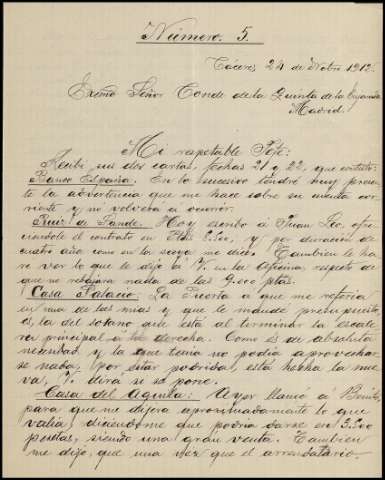 Número. 5.
Cáceres, 24 de Octbre 1912.
Excmo Señor Conde de la Quinta de la Enjarada
Madrid.
Mi respetable Jefe:
Recibí sus dos cartas, fechas 21 y 22, que contesto.
Banco España. En lo sucesivo tendré muy presen-
te la advertencia que me hace sobre su cuenta co-
rriente y no volverá a ocurrir.
Ruiz de Pande. Hoy escribo á Juan Leo, ofre-
ciendole el contrato en Ptas 8.500, y por duracion de
cuatro años como en la suya me dice. Tambien le ha-
re ver lo que le dijo á V. en la oficina, respecto de
que no rebajara nada de las 9.000 ptas.
Casa Palacio. La Puerta a que me referia
en una de las mias y que le mandé presupuesto,
es, la del sotano que está al terminar la escale-
ra principal a la derecha. Como es de absoluta
necesidad y la que tenia no podia aprovechar-
se nada, por estar podrida, está hecha la nue-
va, V. dirá se se pone.
Casa del Aguila: Ayer llamé a Benito,
para que me dijera aproximadamente lo que
valia, diciendome que podria darse en 5.500
pesetas, siendo una gran venta. Tambien
me dijo, que una vez que el arrendatario.